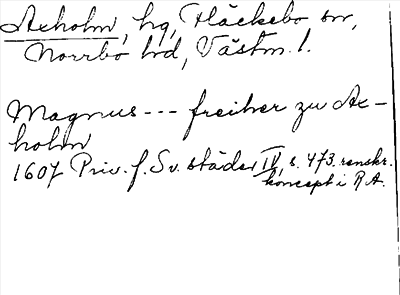 Axholm, hg, Fläckebo sn,
Norrbo hd, Västm. l.
Magnus --- freiher zu Ax-
holm
1607 Priv. f. Sv. städer IV, s. 473. renskr.
koncept i R.A.